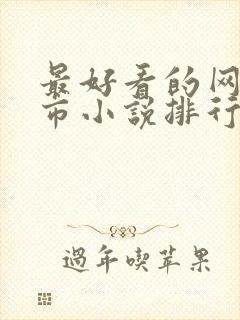 最好看的网
市小说排行
過年喫苹果